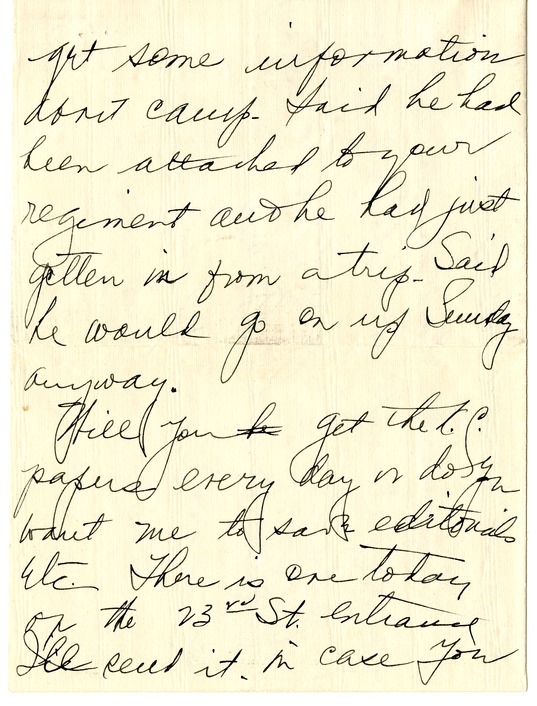 get some information
abont camp. Said he had
been attached to your
regiment and he had just
gotten in from a trip. Said
he would go on up Sunday
anyway.
Will you be get the K.C.
papers every day or do you
want me to save editorials
etc. There is one today
on the 23rd St. entrance
I'll send it. In case you